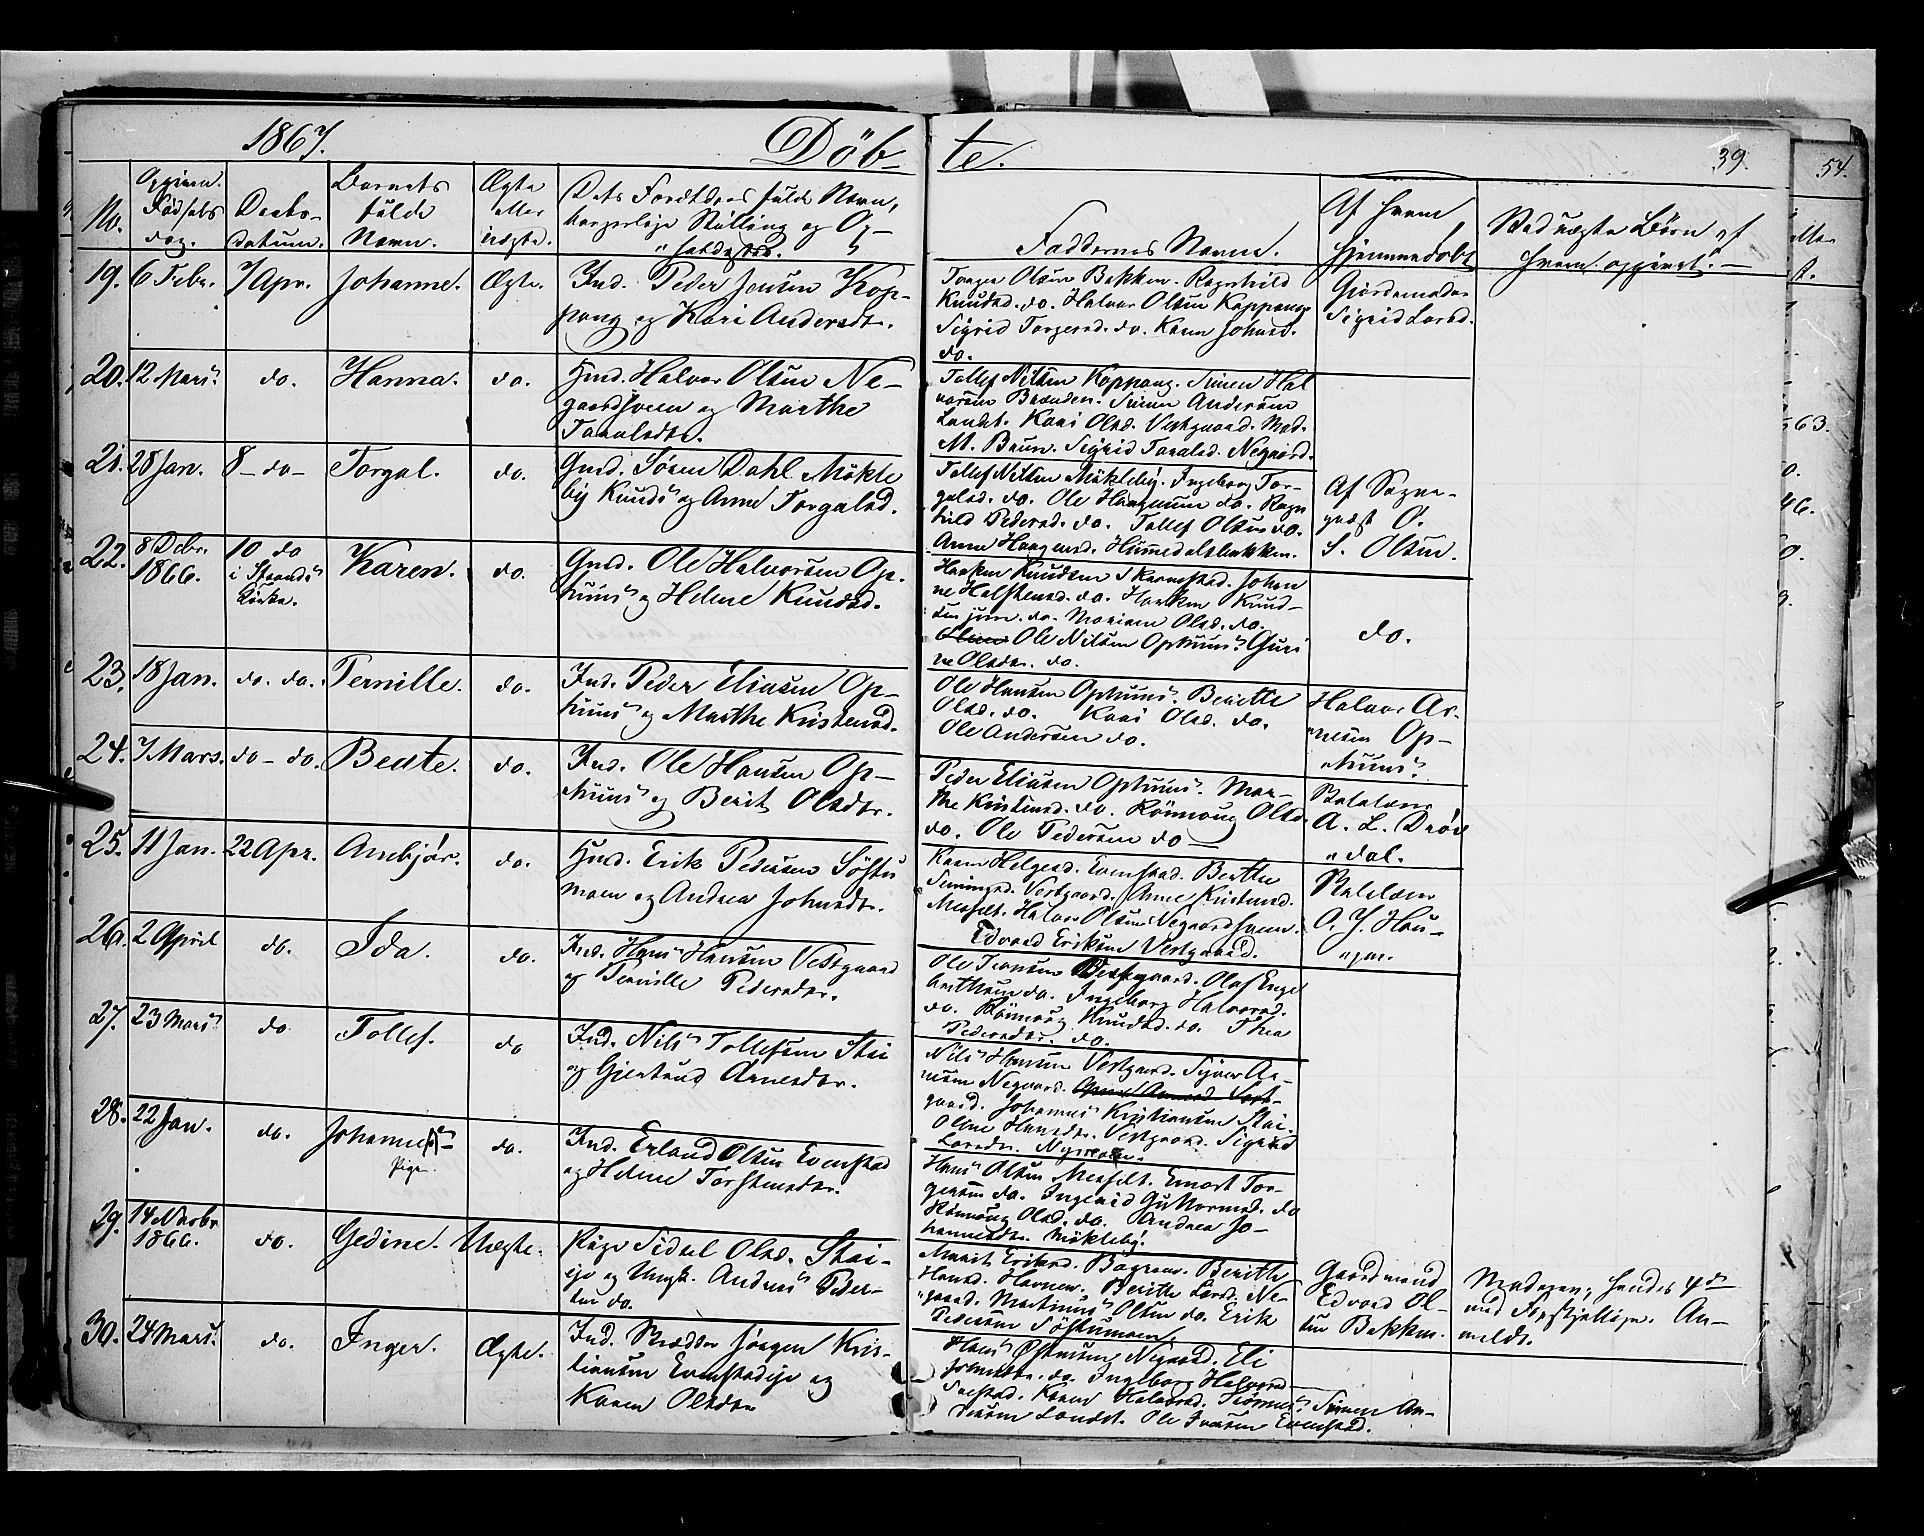 1867. Döb-
te. 39. 54.
No.
Opgiven
Fødsels
dag.
Daabs-
datum.
Barnets
fulde
Navn.
Ægte
eller
uægte.
Dets Forældres fulde Navn,
borgerlige Stilling og Op-
"holdssted.
Faddernes Navne.
Af hvem
hjemmedøbt
Ved uægte Børn af
hvem opgivet. —
19. 6 Febr. 7 Apr. Johanne. Ægte.
Ind. Peder Jensen Kop-
pang og Kari Andersdtr.
Torger Olsen Bakken. Ragnhild
Knudsd. do. Halvor Olsen Koppang
Sigrid Torgersd. do. Karen Johnsd.
do.
Gjordemoder
Sigrid Larsd.
20. 12 Mars. do. Hanna. do.
Gmd. Halvor Olsen Ne-
gaardsveen og Marthe
Taralsdtr.
Tollef Nilsen Koppang. Simen Hal
vorsen Brænden. Simen Andersen
Landet. Kari Olsd. Vestgaard. Mad.
M. Bruun. Sigrid Taralsd. Negaard.
21. 28 Jan. 8 - do - Torgal. do.
Gmd. Sören Dahl Mökle
by Kunds og Anne Torgalsd.
Tollef Nilsen Mökleby. Ingeborg Tor-
galsd. do. Ole Haagensen do. Ragn
hild Pedersd. do. Tollef Olsen do.
Anne Haagensd. Hummedalsbakken.
Af Sogne-
præst O.
S. Olsen.
22. 8 Debr.
1866.
10 do
i Strands
Kirke.
Karen. do.
Gmd. Ole Halvorsen Op-
huus og Helene Knudsd.
Haaken Knudsen Skarnstad. Johan
ne Halstensd. do. Haaken Knud-
sen jun. do. Mariane Olsd. do.
Ole Nilsen Ophuus. Guri
ne Olsdtr. do.
do.
23. 18 Jan. do. do. Pernille. do.
Ind. Peder Eliasen Op-
huus og Marthe Kristensd.
Ole Hansen Ophuus. Berethe
Olsd. do. Kari Olsd. do.
Ole Andersen do.
Halvor Ar-
nesen Op-
"huus.
24. 7 Mars. do - do. Beate. do.
Ind. Ole Hansen Op-
"huus og Berit Olsdtr.
Peder Eliasen Ophuus. Mar-
the Kristensd. do. Rönnoug Olsd.
do. Ole Pedersen do —
Skolelærer
A. L. Dröv
"dal.
25. 11 Jan. 22 Apr. Ambjör. do.
Gmd. Erik Pedersen Söstu
moen og Andrea Johnsdtr.
Karen Helgesd. Evenstad. Berthe
Simensd. Vestgaard. Anne Kristensd.
Messelt. Halvor Olsen Negaardsveen.
Edvard Eriksen Vestgaard.
Skolelærer
O. J. Hau-
"gen.
26. 2 April do. Ida. do.
Ind. Hans Hansen Vestgaard
og Pernille Pedersdtr.
Ole Iversen Vestgaard. Olaf Enge
bretsen do. Ingeborg Halvorsd.
do. Rönnoug Knudsd. do. Thea
Pedersdtr. do.
27. 23 Mars. do. Tollef. do
Ind. Nils Tollefsen Stai
og Gjertrud Arnesdtr.
Nils Hansen Vestgaard. Syver Ar-
nesen Negaard.
gaard. Johannes Kristiansen Stai.
Oline Hansdtr. Vestgaard. Sigrid
Larsdtr. Nymoen.
28. 22 Jan. do. Johanne
Pige.
do.
Ind. Erland Olsen Evenstad
og Helene Torstensdtr.
Hans Olsen Messelt. Emort Tor-
gersen do. Ingerid Guttormsd. do
Rönnoug Olsd. do. Andrea Jo-
hannesdtr. Mökleby.
29. 14 Novbr
1866.
do. Gedine. Uægte.
Pige Sidsel Olsd. Stai-
eje og Ungk. Andreas Peder-
sen do.
Marit Eriksd. Bagroen. Berithe
Hansd. Harnæs. Berithe Larsd. Ne-
"gaard. Martinus Olsen do. Erik
Pedersen Söstumoen.
Gaardmand
Edvard Ol-
sen Bakken.
Moderen, hendes 4de
med Forskjellige. An-
meldt.
30. 24 Mars. do. Inger. Ægte.
Ind. Skrædder Jörgen Kris-
tiansen Evenstadeje og
Karen Olsdtr
Hans Östensen Negaard. Eli
Johnsdtr. do. Ingeborg Halvorsd
Halvorsd. Simen An-
dersen Landet. Ole Iversen Evenstad.